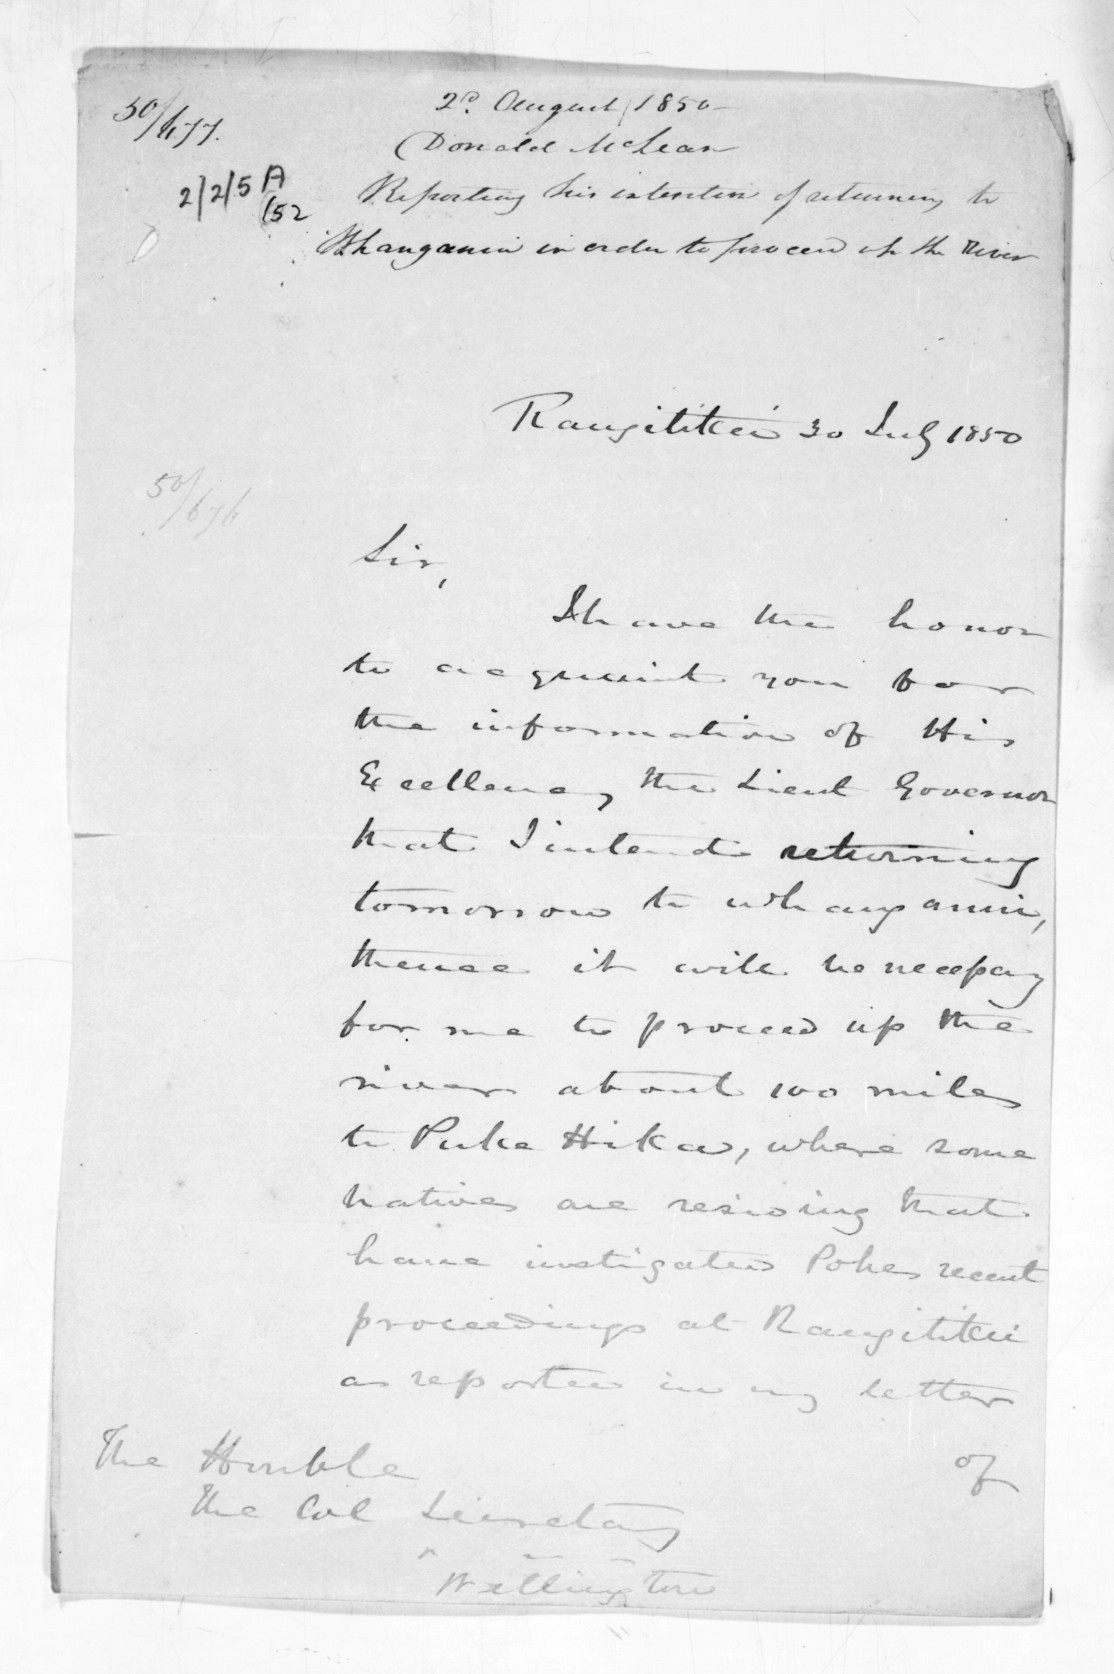 50/677.
2d. August 1850
Donald McLean
2/2/5 A
/52
Reporting his intention of returning to
Whanganui in order to proceed up the River
Rangitikei 30 July 1850
50/676
Sir,
I have the honor
to acquaint you for
the information of His
Excellency the Lieut Governor
that I intend returning
tomorrow to Whanganui,
thence it will be necessary
for me to proceed up the
river about 100 miles
to Puke Hika, where some
natives are residing that
have instigated Pohes recent
proceedings at Rangitikei
as reported in my letter
of
The Honble
The Col Secretary
Wellington